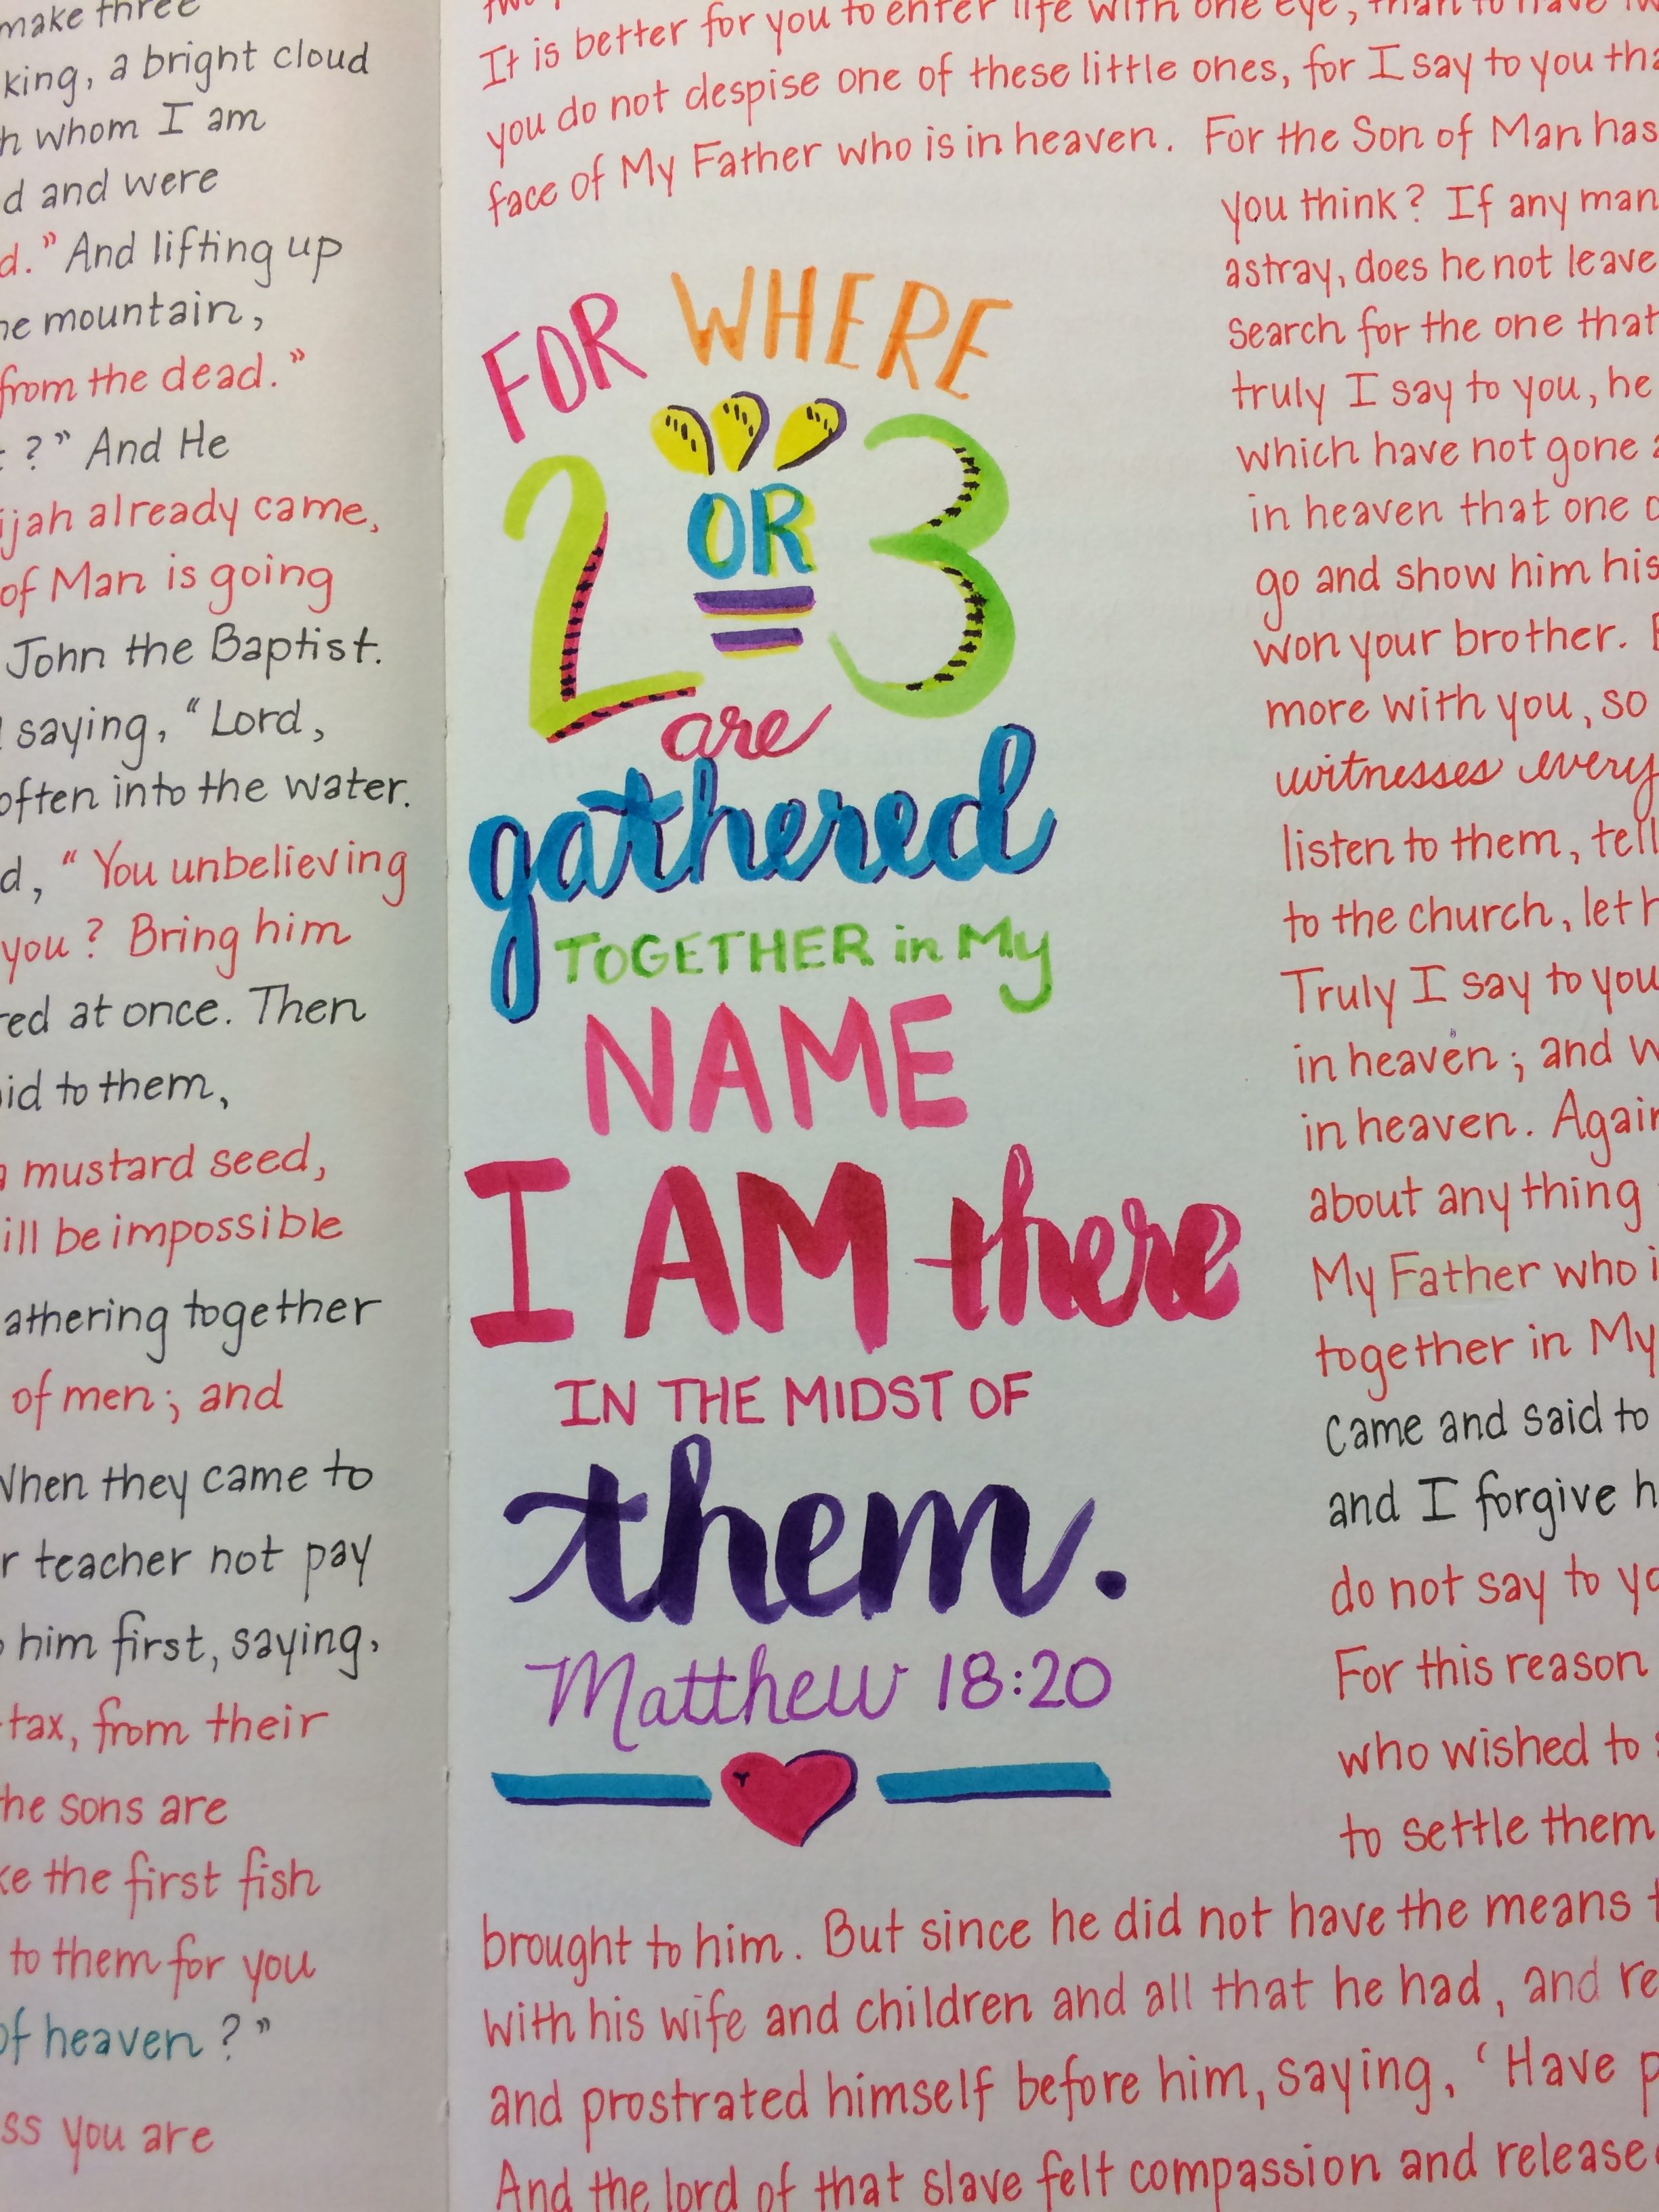 make three
king, a bright cloud
h whom I am
d and were
d." And lifting up
he mountain,
from the dead."
?" And He
ijah already came,
of Man is going
John the Baptist.
saying, "Lord,
often into the water.
d, "You unbelieving
you? Bring him
red at once. Then
id to them,
mustard seed,
ill be impossible
athering together
of men; and
When they came to
r teacher not pay
him first, saying,
tax, from their
he sons are
ke the first fish
to them for you
of heaven?"
ss you are
It is better for you to enter life with one eye, than to have tw
you do not despise one of these little ones, for I say to you tha
face of My Father who is in heaven. For the Son of Man has
you think? If any man
astray, does he not leave
search for the one that
truly I say to you, he
which have not gone a
in heaven that one o
go and show him his
won your brother. B
more with you, so
witnesses every
listen to them, tell
to the church, let h
Truly I say to you
in heaven; and w
in heaven. Again
about anything
My Father who i
together in My
came and said to
and I forgive h
do not say to yo
For this reason
who wished to s
to settle them
FOR WHERE
2 OR 3
are
gathered
TOGETHER in My
NAME
I AM there
IN THE MIDST OF
them.
Matthew 18:20
brought to him. But since he did not have the means t
with his wife and children and all that he had, and re
and prostrated himself before him, saying, 'Have p
And the lord of that slave felt compassion and release